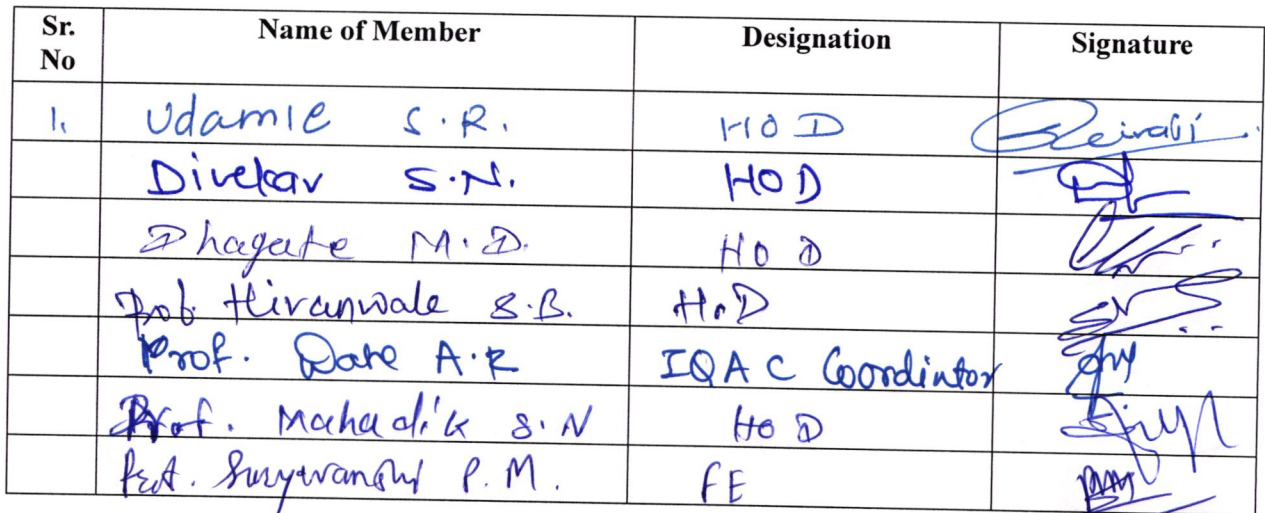 Sr. No Name of Member Designation Signature
1. Udamle S.R. HOD
Divekar S.N. HOD
Dhagate M.D. HOD
Prof. Hiranwale S.B. HOD
Prof. Date A.R IQAC Coordintor
Prof. Mahadik S.N HOD
Prof. Suryavanshi P.M. FE